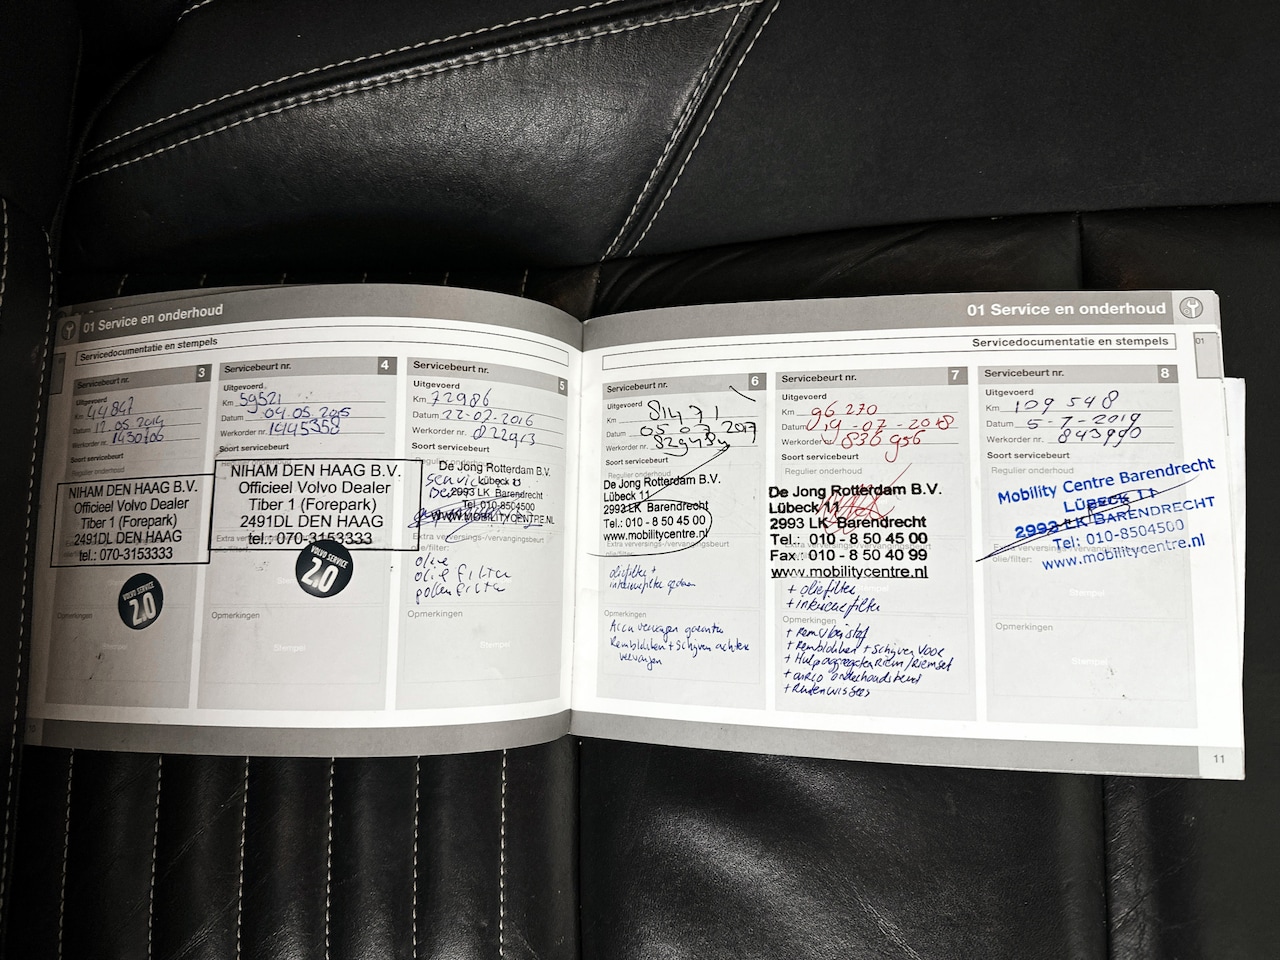 01 Service en onderhoud
Servicedocumentatie en stempels
Servicebeurt nr. 3
Uitgevoerd
Km 44847
Datum 12.05.2014
Werkorder nr. 1430606
Soort servicebeurt
Regulier onderhoud
NIHAM DEN HAAG B.V.
Officieel Volvo Dealer
Tiber 1 (Forepark)
2491DL DEN HAAG
tel.: 070-3153333
VOLVO SERVICE
2.0
Opmerkingen
Stempel
Servicebeurt nr. 4
Uitgevoerd
Km 59521
Datum 04.05.2015
Werkorder nr. 1445358
Soort servicebeurt
NIHAM DEN HAAG B.V.
Officieel Volvo Dealer
Tiber 1 (Forepark)
2491DL DEN HAAG
tel.: 070-3153333
VOLVO SERVICE
2.0
Opmerkingen
Stempel
Servicebeurt nr. 5
Uitgevoerd
Km 72986
Datum 22-02-2016
Werkorder nr. 822913
Soort servicebeurt
De Jong Rotterdam B.V.
Lübeck 11
2993 LK Barendrecht
Tel: 010-8504500
WWW.MOBILITYCENTRE.NL
Extra verversings-/vervangingsbeurt
olie/filter:
olie
olie filter
pollenfilter
Opmerkingen
Stempel
10
01 Service en onderhoud
01
Servicedocumentatie en stempels
Servicebeurt nr. 6
Uitgevoerd
Km 81471
Datum 05-07-2017
Werkorder nr. 829484
Soort servicebeurt
Regulier onderhoud
De Jong Rotterdam B.V.
Lübeck 11
2993 LK Barendrecht
Tel.: 010 - 8 50 45 00
www.mobilitycentre.nl
Extra verversings-/vervangingsbeurt
olie/filter:
oliefilter +
interieurfilter gedaan
Opmerkingen
Accu vervangen garantie
Remblokken + schijven achter
vervangen
Servicebeurt nr. 7
Uitgevoerd
Km 96270
Datum 19-07-2018
Werkorder nr. 836956
Soort servicebeurt
Regulier onderhoud
De Jong Rotterdam B.V.
Lübeck 11
2993 LK Barendrecht
Tel.: 010 - 8 50 45 00
Fax : 010 - 8 50 40 99
www.mobilitycentre.nl
+ oliefilter
+ interieurfilter
Opmerkingen
+ Remvloeistof
+ Remblokken + schijven voor
+ Hulpaggregaten riem/riemset
+ airco onderhoudsbeurt
+ Ruitenwissers
Servicebeurt nr. 8
Uitgevoerd
Km 109548
Datum 5-7-2019
Werkorder nr. 843990
Soort servicebeurt
Regulier onderhoud
Mobility Centre Barendrecht
Lübeck 11
2993 LK BARENDRECHT
Tel: 010-8504500
www.mobilitycentre.nl
Opmerkingen
Stempel
11